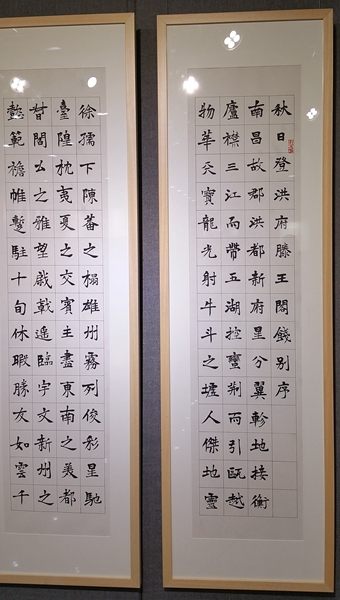 秋日登洪府滕王閣餞别序
南昌故郡洪都新府星分翼軫地接衡
廬襟三江而帶五湖控蠻荆而引甌越
物華天寶龍光射牛斗之墟人傑地靈
徐孺下陳蕃之榻雄州霧列俊彩星馳
臺隍枕夷夏之交賓主盡東南之美都
督閻公之雅望棨戟遥臨宇文新州之
懿範襜帷蹔駐十旬休暇勝友如雲千